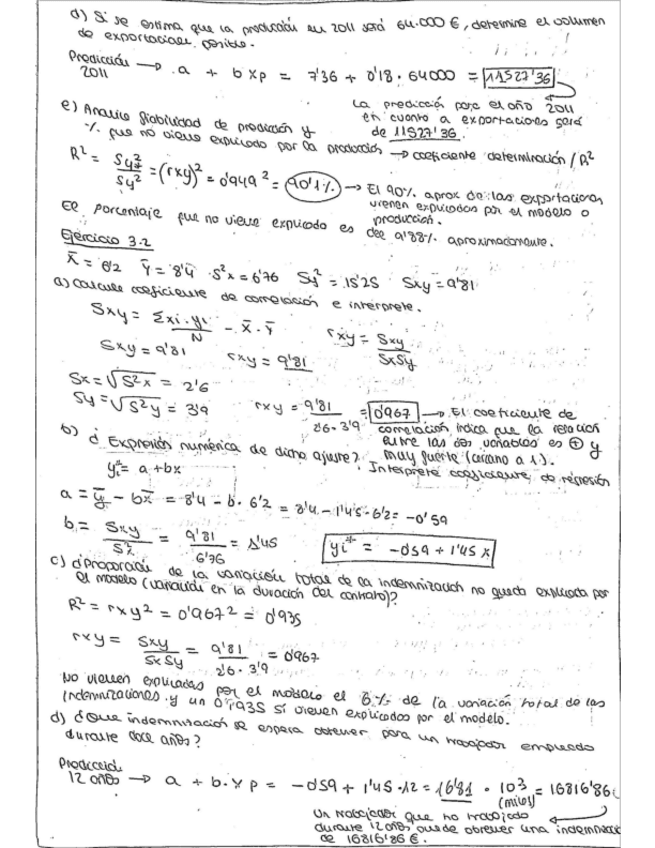 d) Si se estima que la producción en 2011 será 64.000 €, determine el volumen
de exportaciones posible.
Predicción 2011 → a + b x p = 7'36 + 0'18 · 64000 = 11527'36
La predicción para el año 2011
en cuanto a exportaciones será
de 11527'36.
e) Analice fiabilidad de predicción y
% que no viene explicado por la producción → coeficiente determinación / R²
R² = Sy*²/Sy² = (rxy)² = 0'949² = 90'1% → El 90% aprox de las exportaciones
vienen explicados por el modelo o
producción.
El porcentaje que no viene explicado es de 9'88% aproximadamente.
Ejercicio 3.2
x̄ = 6'2 ȳ = 8'4 S²x = 6'76 Sy² = 15'25 Sxy = 9'81
a) Calcule coeficiente de correlación e interprete.
Sxy = Σxi·yi/N - x̄·ȳ rxy = Sxy/SxSy
Sxy = 9'81 rxy = 9'81
Sx = √S²x = 2'6
Sy = √S²y = 3'9 rxy = 9'81/2'6·3'9 = 0'967 → El coeficiente de
correlación indica que la relación
entre las dos variables es ⊕ y
muy fuerte (cercano a 1).
b) ¿Expresión numérica de dicho ajuste? Interprete coeficiente de regresión
yi* = a + bx
a = ȳ - bx̄ = 8'4 - b · 6'2 = 8'4 - 1'45 · 6'2 = -0'59
b = Sxy/S²x = 9'81/6'76 = 1'45 yi* = -0'59 + 1'45 x
c) ¿Proporción de la variación total de la indemnización no queda explicada por
el modelo (variación en la duración del contrato)?
R² = rxy² = 0'967² = 0'935
rxy = Sxy/SxSy = 9'81/2'6·3'9 = 0'967
No vienen explicadas por el modelo el 6% de la variación total de las
indemnizaciones y un 0'935 sí vienen explicados por el modelo.
d) ¿Qué indemnización se espera obtener para un trabajador empleado
durante doce años?
Predicción 12 años → a + b · xp = -0'59 + 1'45 · 12 = 16'81 · 10³ = 16816'86
(miles)
Un trabajador que ha trabajado
durante 12 años puede obtener una indemniza
de 16816'86 €.